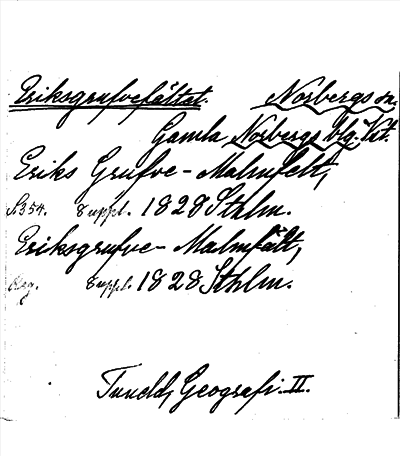 Eriksgrufvefältet. Norbergs sn.
Gamla Norbergs blg. Vst.
Eriks Grufve-Malmfelt,
s. 354. Suppl. 1828 Sthlm.
Eriksgrufve-Malmfält,
Reg. Suppl. 1828 Sthlm.
Tuneld, Geografi. II.